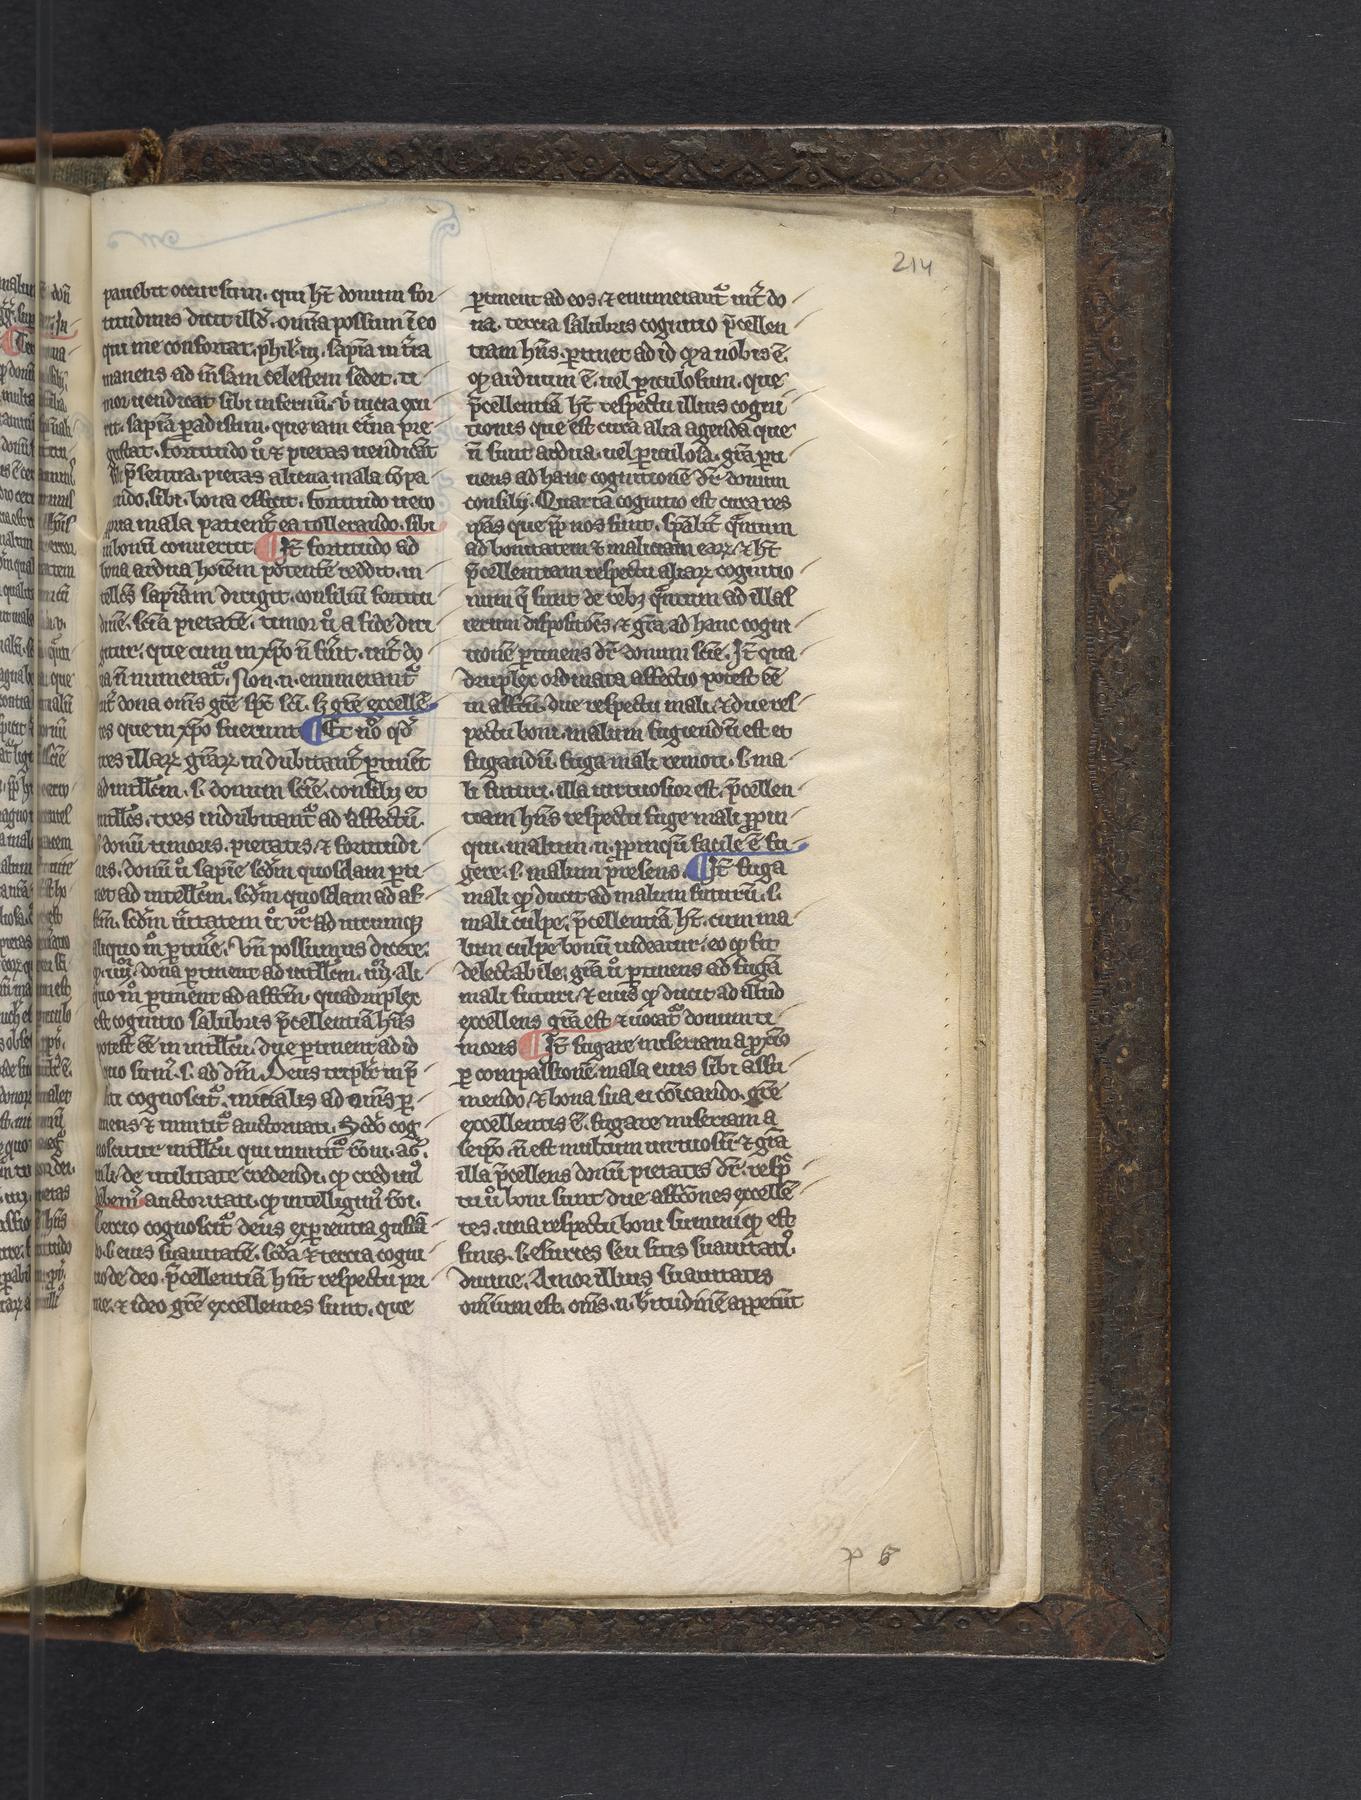 214
pauebit occursum. qui ht̄ donum for
titudinis dicit illd̄. om̄ia possum ī eo
qui me confortat. phil'. iiij. sapīa in t̄ra
manens ad m̄sam celestem sedet. ti
mor uendicat sibi infernū.
rit. sapīa paradisum. que iam et̄na pre
gustat. fortitudo ů ⁊ pietas uendicāt
p̄sentia. pietas aliena mala cōpa
tiendo. sibi bona efficit. fortitudo uero
mala patient̄ ea tollerando. sibi
in bonū conuertit ¶ It̄ fortitudo ad
bona ardua hoīem potentē reddit. in
tell'cs sapīam dirigit. consiliū fortitu
dinē. scīa pietatē. timor ů a fide diri
gitur. que cum in xp̄o n̄ fůit. int̄ do
na n̄ numerat̉. Non .n. enumerant̉
int̄ dona om̄s grē sp̄c scī. sꝫ grē excellē
tes que in xp̄o fuerunt ¶ Et nō qd̄
tres illaꝝ grāꝝ indubitant̉ ꝑtinēt
ad intll'm. s. donum scīe. consilij et
intll'cs. tres indubitant̉ ad affectū.
s. donū timoris. pietatis. ⁊ fortitudi
nis. donū ů sapīe scdm̄ quosdam ꝑti
net ad intellcm̄. scdm̄ quosdam ad af
fcm̄. scdm̄ ůitatem ů ad utrumqꝫ
aliquo mō ꝑtinē. Vn̄ possumus dicere.
q .iiij. dona ꝑtinent ad intllcm̄. iiij. ali
quo mō ꝑtinent ad affcm̄. quadruplex
est cognitio salubris p̄cellentiā hn̄s
potest eē in intllcū. due ꝑtinent ad id
quo fruim̉. s. ad dm̄. Deus tripl'r in p̄
senti cognoscit̉. initialis ad om̄is ꝑ
tinens ⁊ innitit̉ auctoritati. Scdo cog
noscitur intllcū qui innitit̉ rōni. aug̉.
in li. de utilitate credendi. ꝙ credim̉
debem̉ auctoritati. ꝙ intelligim̉ rōi.
Tercio cognoscit̉ deus exꝑientia gustā
do. s. eius suauitatē. scda ⁊ tercia cogni
tio de deo. p̄cellentiā hn̄t respectu pri
me. ⁊ ideo grē excellentes sunt. que
ꝑtinent ad eos. ⁊ enumerant̉ int̄ do
na. tercia salubris cognitio p̄cellen
tiam hn̄s. ꝑtinet ad id ꝙ a nobis ē.
ꝙ arduum ē. uel ꝑiculosum. que
p̄cellentiā ht̄ respectu illius cogni
tionis que est circa alia agenda que
n̄ sunt ardua. uel ꝑiculosa. grā ꝑti
nens ad hanc cognitionē dr̄ donum
consilij. Quarta cognitio est circa res
ip̄as que ꝓp̄ nos sunt. hr̄abit̄ q̄ntum
ad bonitatem ⁊ maliciam eaꝝ. ⁊ ht̄
p̄cellentiam respectu aliaꝝ cognitio
num q̄ sunt de rebꝫ q̄ntum ad illas
rerum dispositōes. ⁊ grā ad hanc cogni
tionē ꝑtinens dr̄ donum scīe. It̄ qua
druplex ordinata affectio potest eē
in affcū. due respectu mali. ⁊ due res
pectu boni. malum fugiendū est et
fugandū. fuga mali remoti. s. ma
li futuri. illa uirtuosior est. p̄cellen
tiam hn̄s respectu fuge mali ꝓpin
qui. malum .n. ꝓpinqū facile ē fu
gere. s. malum p̄sens. ¶ It̄ fuga
mali ꝙ ducit ad malum futurū. s.
mali culpe. p̄cellentiā ht̄. cum ma
lum culpe bonū uideatur. eo ꝙ sit
delectabile. grā ů ꝑtinens ad fugā
mali futuri. ⁊ eius ꝙ ducit ad illud
excellens grā est ⁊ uocat̉ donum ti
moris ¶ It̄ fugare miseriam a ꝓxīo
ꝑ compassionē. mala eius sibi assu
mendo. ⁊ bona sua ei cōicando. grē
excellentis ē. fugare miseriam a
seip̄o. n̄ est multum uirtuosū. ⁊ grā
illa p̄cellens donū pietatis dr̄. resp̄c
tu ů boni sunt due affcōnes excellē
tes. una respectu boni summi ꝙ est
finis. s. esuries seu sitis suauitatꝭ
diuine. Amor illius suauitatis
omnium est. om̄s .n. b̄titudinē appetunt
p 6